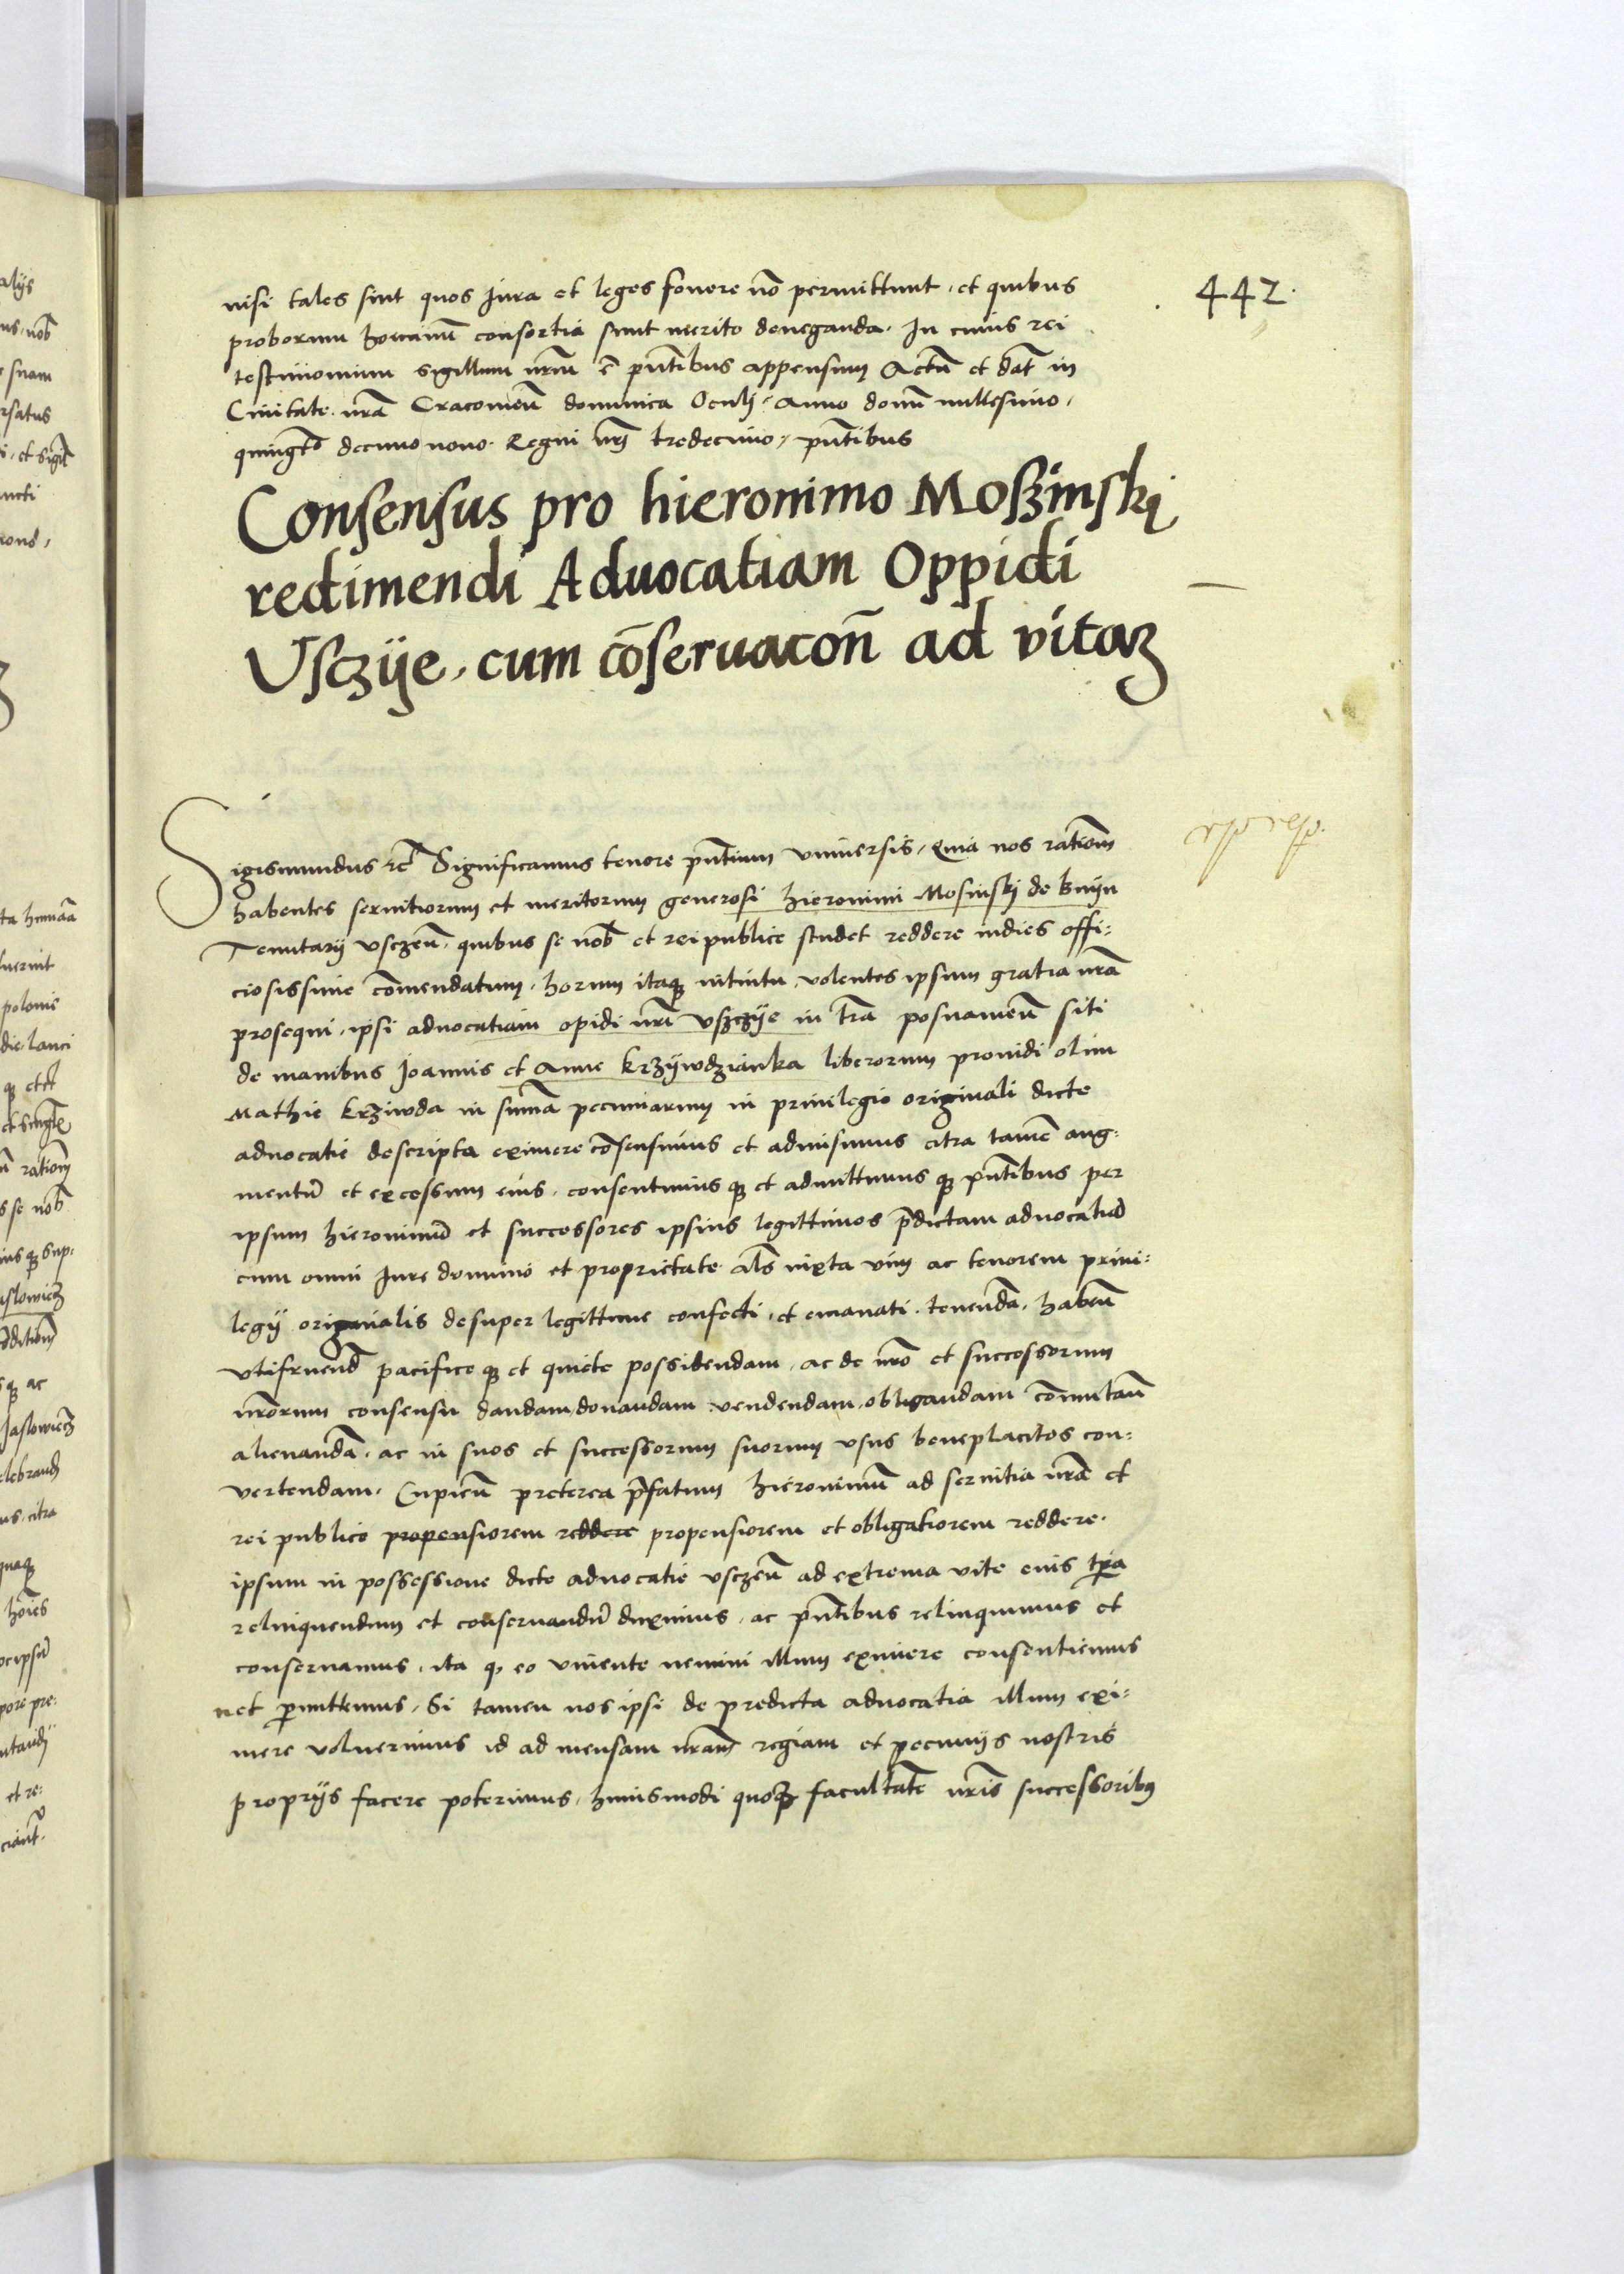 442.
nisi tales sint quos Jura et leges fovere nō permittunt, et quibus
proborum hominū consortia sunt merito deneganda. In cuius rei
testimonium sigillum nr̄m ē pn̄tibus appensum Actū et dat̄ in
Civitate nr̄a Cracovieñ dominica Oculj Anno domī millesimo,
quingeto decimo nono. Regni nr̄j tredecimo, pn̄tibus
Consensus pro hieronimo Moszinskj
redimendi Aduocatiam Oppidi
Usczije, cum cōseruacoñ ad vitaʒ
Sigismundus etc̄ Significamus tenore pn̄tium vniuersis, Quia nos rationē
habentes seruitiorum et meritorum generosi hieronimi Mosinskj de bnijn
Tenutarij vsczeñ, quibus se nob̄ et rei publice studet reddere indies offi:
ciosissime cōmendatum, horum itaqʒ intuitu volentes ipsum gratia nr̄a
prosequi, ipsi aduocatiam opidi nr̄i vszczije in tr̄a posnanieñ siti
de manibus Joannis et Anne krzijwdzianka liberorum prouidi olim
Mathie krziwda in sum̄a pecuniarum in priuilegio originali dicte
aduocatie descripta eximere cōsensimus et admisimus citra tamē aug:
mentū et excessum eius, consentimus qʒ et admittimus qʒ pn̄tibus per
ipsum hieronimū et successores ipsius legittimos p̄dictam aduocatiā
cum omni Jure dominio et proprietate al̄s iuxta vim ac tenorem priui:
legij originalis desuper legittime confecti, et emanati, tenendā, habeñ
vtifruend̄ pacifice qʒ et quiete possidendam, ac de nr̄o et successorum
nr̄orum consensu dandam, donandam vendendam, obligandam cōmutañ
alienandā, ac in suos et successorum suorum vsus beneplacitos con:
vertendam. Cupieñ preterea p̄fatum hieronimū ad seruitia nr̄a et
rei publice propensiorem reddere propensiorem et obligatiorem reddere.
ipsum in possessione dicte aduocatie vsczeñ ad extrema vite eius tp̄a
relinquendum et conseruandū duximus, ac pn̄tibus relinquimus et
conseruamus, ita q, eo viuente nemini illum eximere consentiemus
nec p̄mittemus, Si tamen nos ipsi de predicta aduocatia illum exi:
mere voluerimus id ad mensam nr̄am regiam et pecunijs nostris
proprijs facere poterimus, huiusmodi quoqʒ facultatē nr̄is successoribus